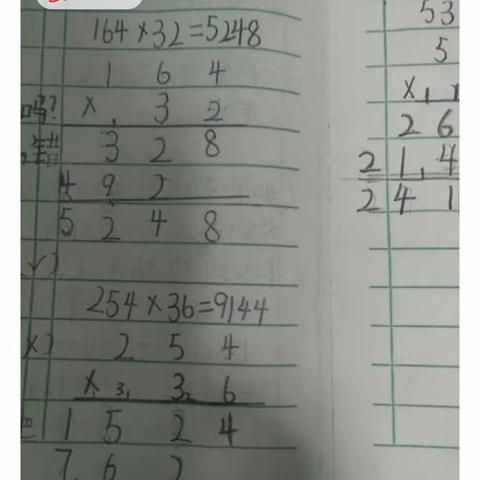 164×32=5248
1 6 4
× 3 2
3 2 8
4 9 2
5 2 4 8
254×36=9144
2 5 4
× 3 3 2 6
1 5 2 4
7 6 2
吗?
错
✓)
×)
53
5
×
2 6
2 1 4
2 4 1